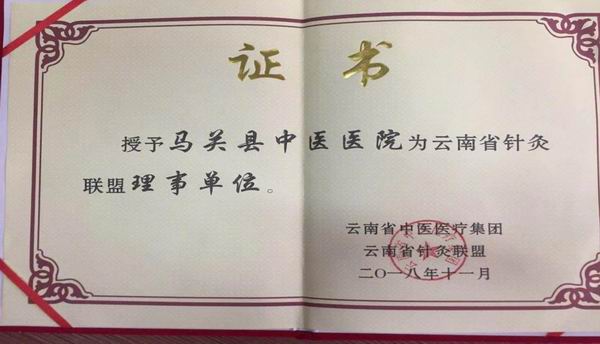 证书
授予马关县中医医院为云南省针灸
联盟理事单位。
云南省中医医疗集团
云南省针灸联盟
二〇一八年十一月